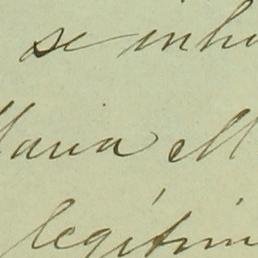 se inhu
Maria M
legitim